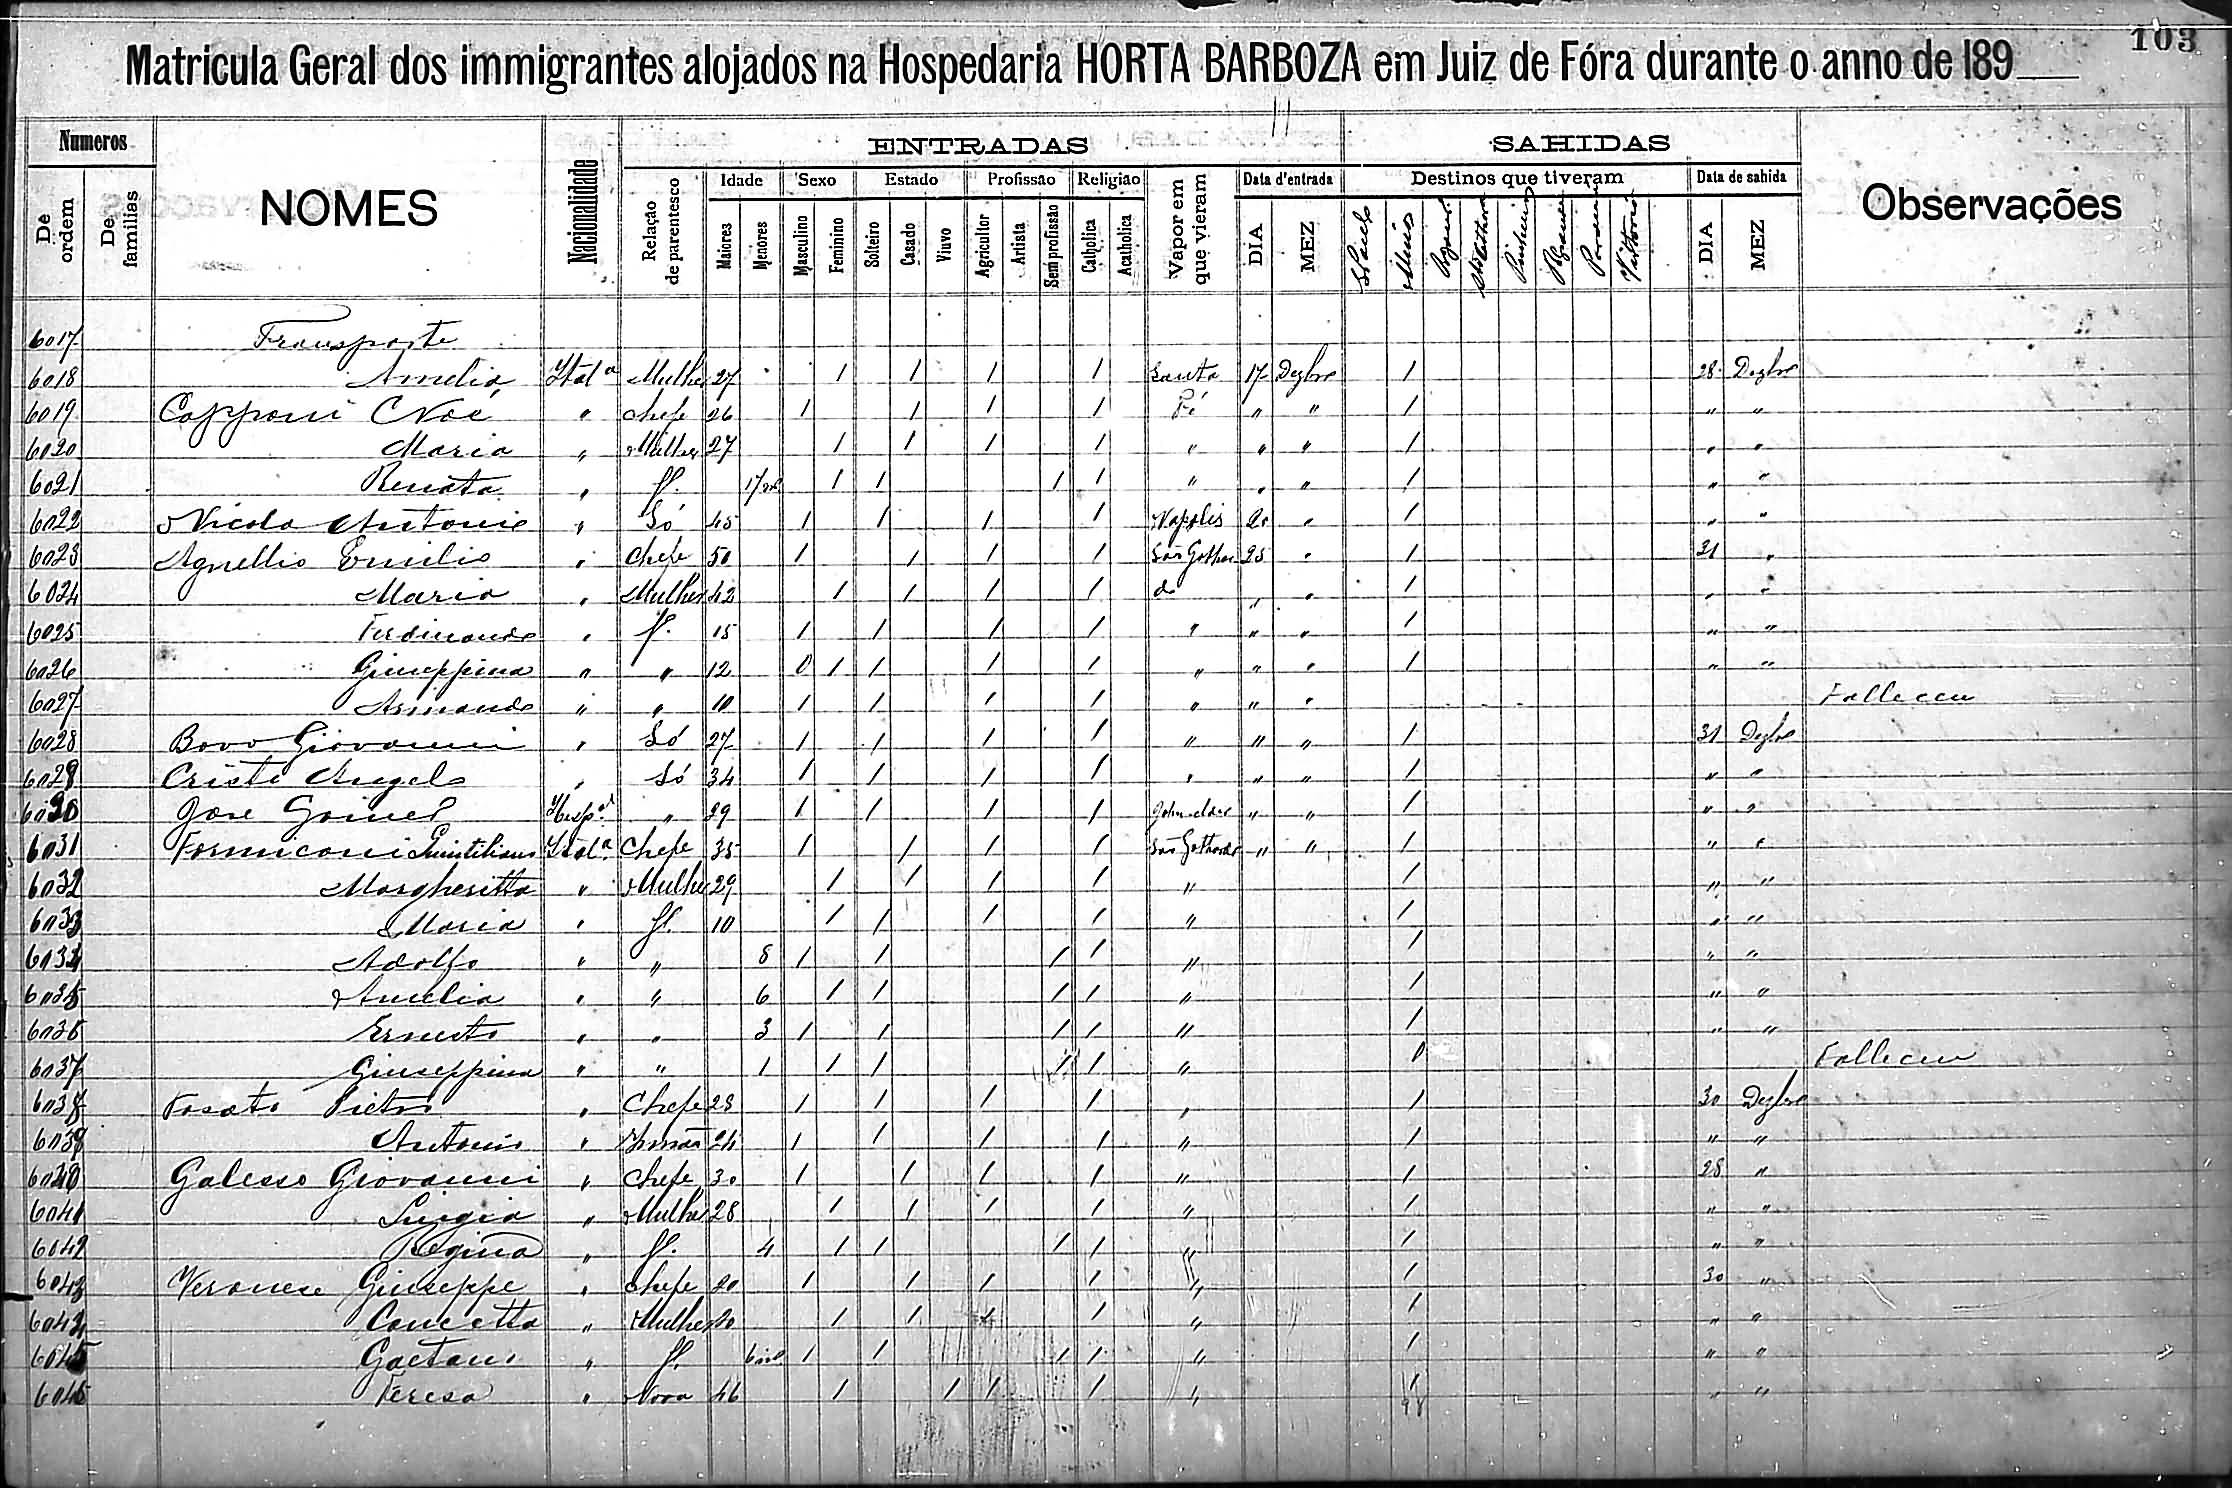 103
Matricula Geral dos immigrantes alojados na Hospedaria HORTA BARBOZA em Juiz de Fóra durante o anno de 189
Numeros NOMES Nacionalidade ENTRADAS SAHIDAS Observações
De ordem De familias Relação de parentesco Idade Sexo Estado Profissão Religião Vapor em que vieram Data d'entrada Destinos que tiveram Data de sahida
Maiores Menores Masculino Feminino Solteiro Casado Viuvo Agricultor Artista Sem profissão Catholica Acatholica DIA MEZ S Paulo Minas DIA MEZ
6017 Transporte
6018 Amelia Ital.a Mulher 27 1 1 1 1 Santa 17 Dezbro 1 28 Dezbro
6019 Capponi Noé " Chefe 26 1 1 1 1 Fé " " 1 " "
6020 Maria " Mulher 27 1 1 1 1 " " " 1 " "
6021 Renata " fl. 1 1 1 1 " " " 1 " "
6022 Nicola Antonio " Só 45 1 1 1 1 Napolis 20 " 1 " "
6023 Agnellio Emilio " Chefe 50 1 1 1 1 São Gothar 25 " 1 31 "
6024 Maria " Mulher 42 1 1 1 1 do " " 1 " "
6025 Ferdinando " fl. 15 1 1 1 1 " " " 1 " "
6026 Giuseppina " " 12 0 1 1 1 1 " " " 1 " "
6027 Armando " " 10 1 1 1 1 " " " Falleceu
6028 Bovo Giovanni " Só 27 1 1 1 1 " " " 1 31 Dezbro
6029 Criste Angelo " Só 34 1 1 1 1 " " " 1 " "
6030 Jose Gomes Hesp.al " 29 1 1 1 1 John elder " " 1 " "
6031 Formiconi Quintiliano Ital.a Chefe 35 1 1 1 1 São Gothardo " " 1 " "
6032 Margheritta " Mulher 29 1 1 1 1 " 1 " "
6033 Maria " fl. 10 1 1 1 1 " 1 " "
6034 Adolfo " " 8 1 1 1 1 " 1 " "
6035 Amelia " " 6 1 1 1 1 " 1 " "
6036 Ernesto " " 3 1 1 1 1 " 1 " "
6037 Giuseppina " " 1 1 1 1 1 " 0 Falleceu
6038 Fosato Pietro " Chefe 28 1 1 1 1 " 1 30 Dezbro
6039 Antonio " Irmão 24 1 1 1 1 " 1 " "
6040 Galesso Giovanni " Chefe 30 1 1 1 1 " 1 28 "
6041 Luigia " Mulher 28 1 1 1 1 " 1 " "
6042 Regina " fl. 4 1 1 1 1 " 1 " "
6043 Veronese Giuseppe " Chefe 20 1 1 1 1 " 1 30 "
6044 Concetta " Mulher 20 1 1 1 1 " 1 " "
6045 Gaetano " fl. 1 1 1 1 " 1 " "
6046 Teresa " Nora 46 1 1 1 1 " 1 " "